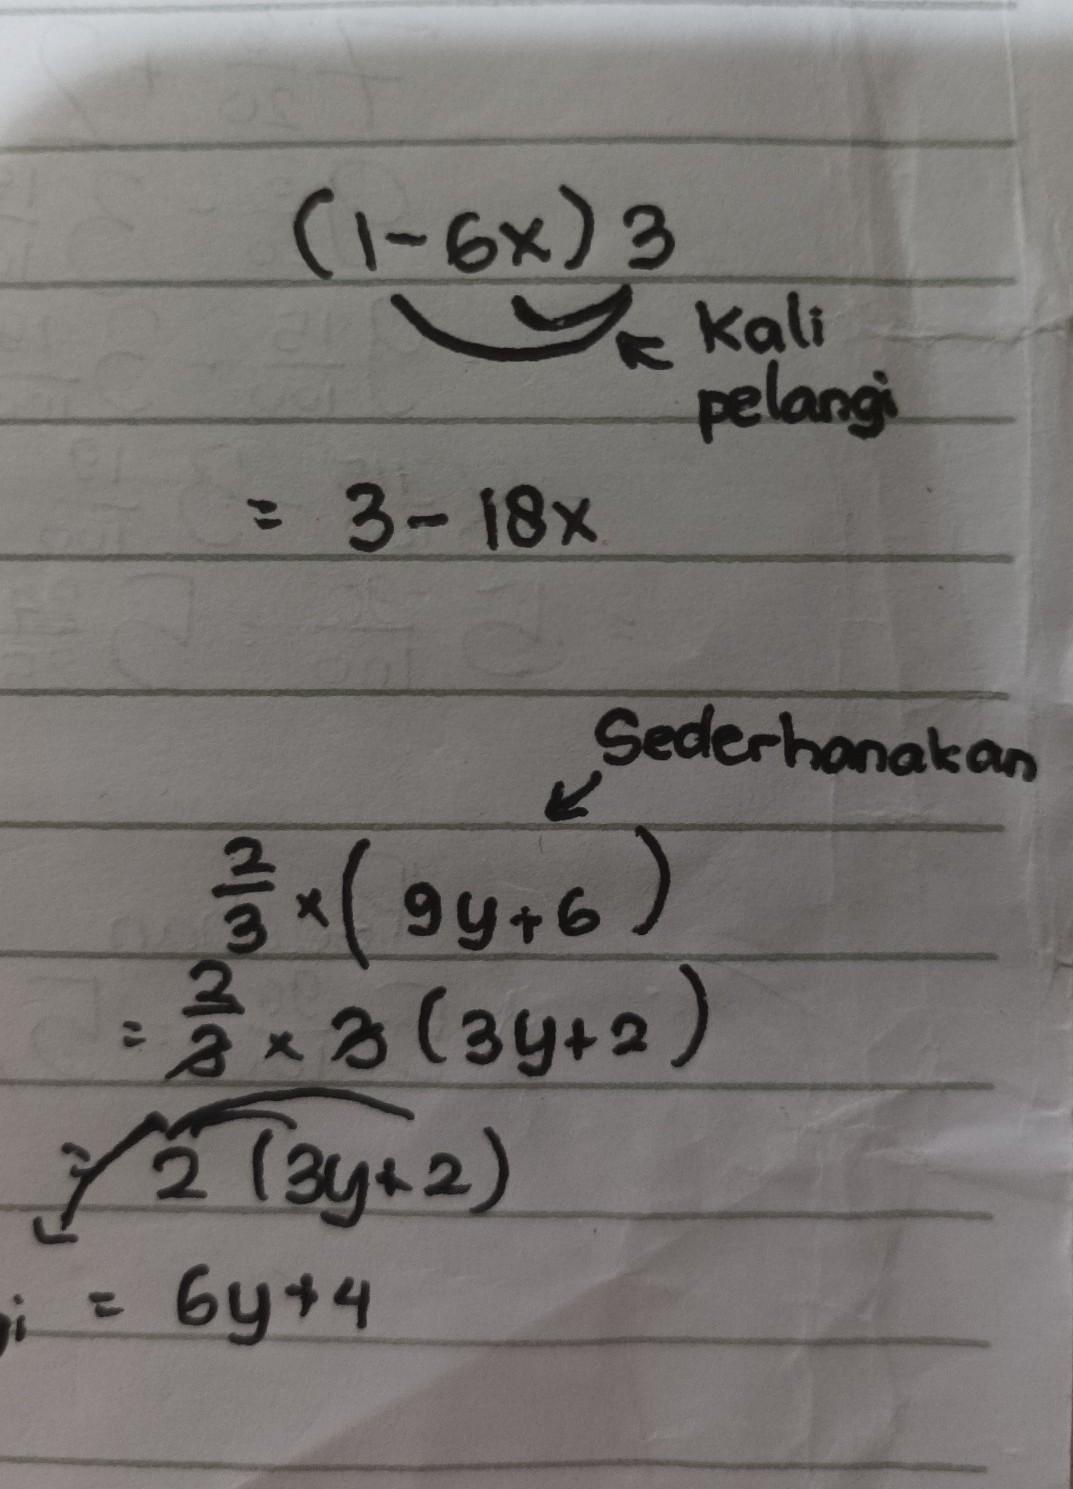 (1-6x) 3
Kali
pelangi
= 3-18x
Sederhanakan
2/3 × (9y+6)
= 2/3 × 3 (3y+2)
= 2 (3y+2)
= 6y+4